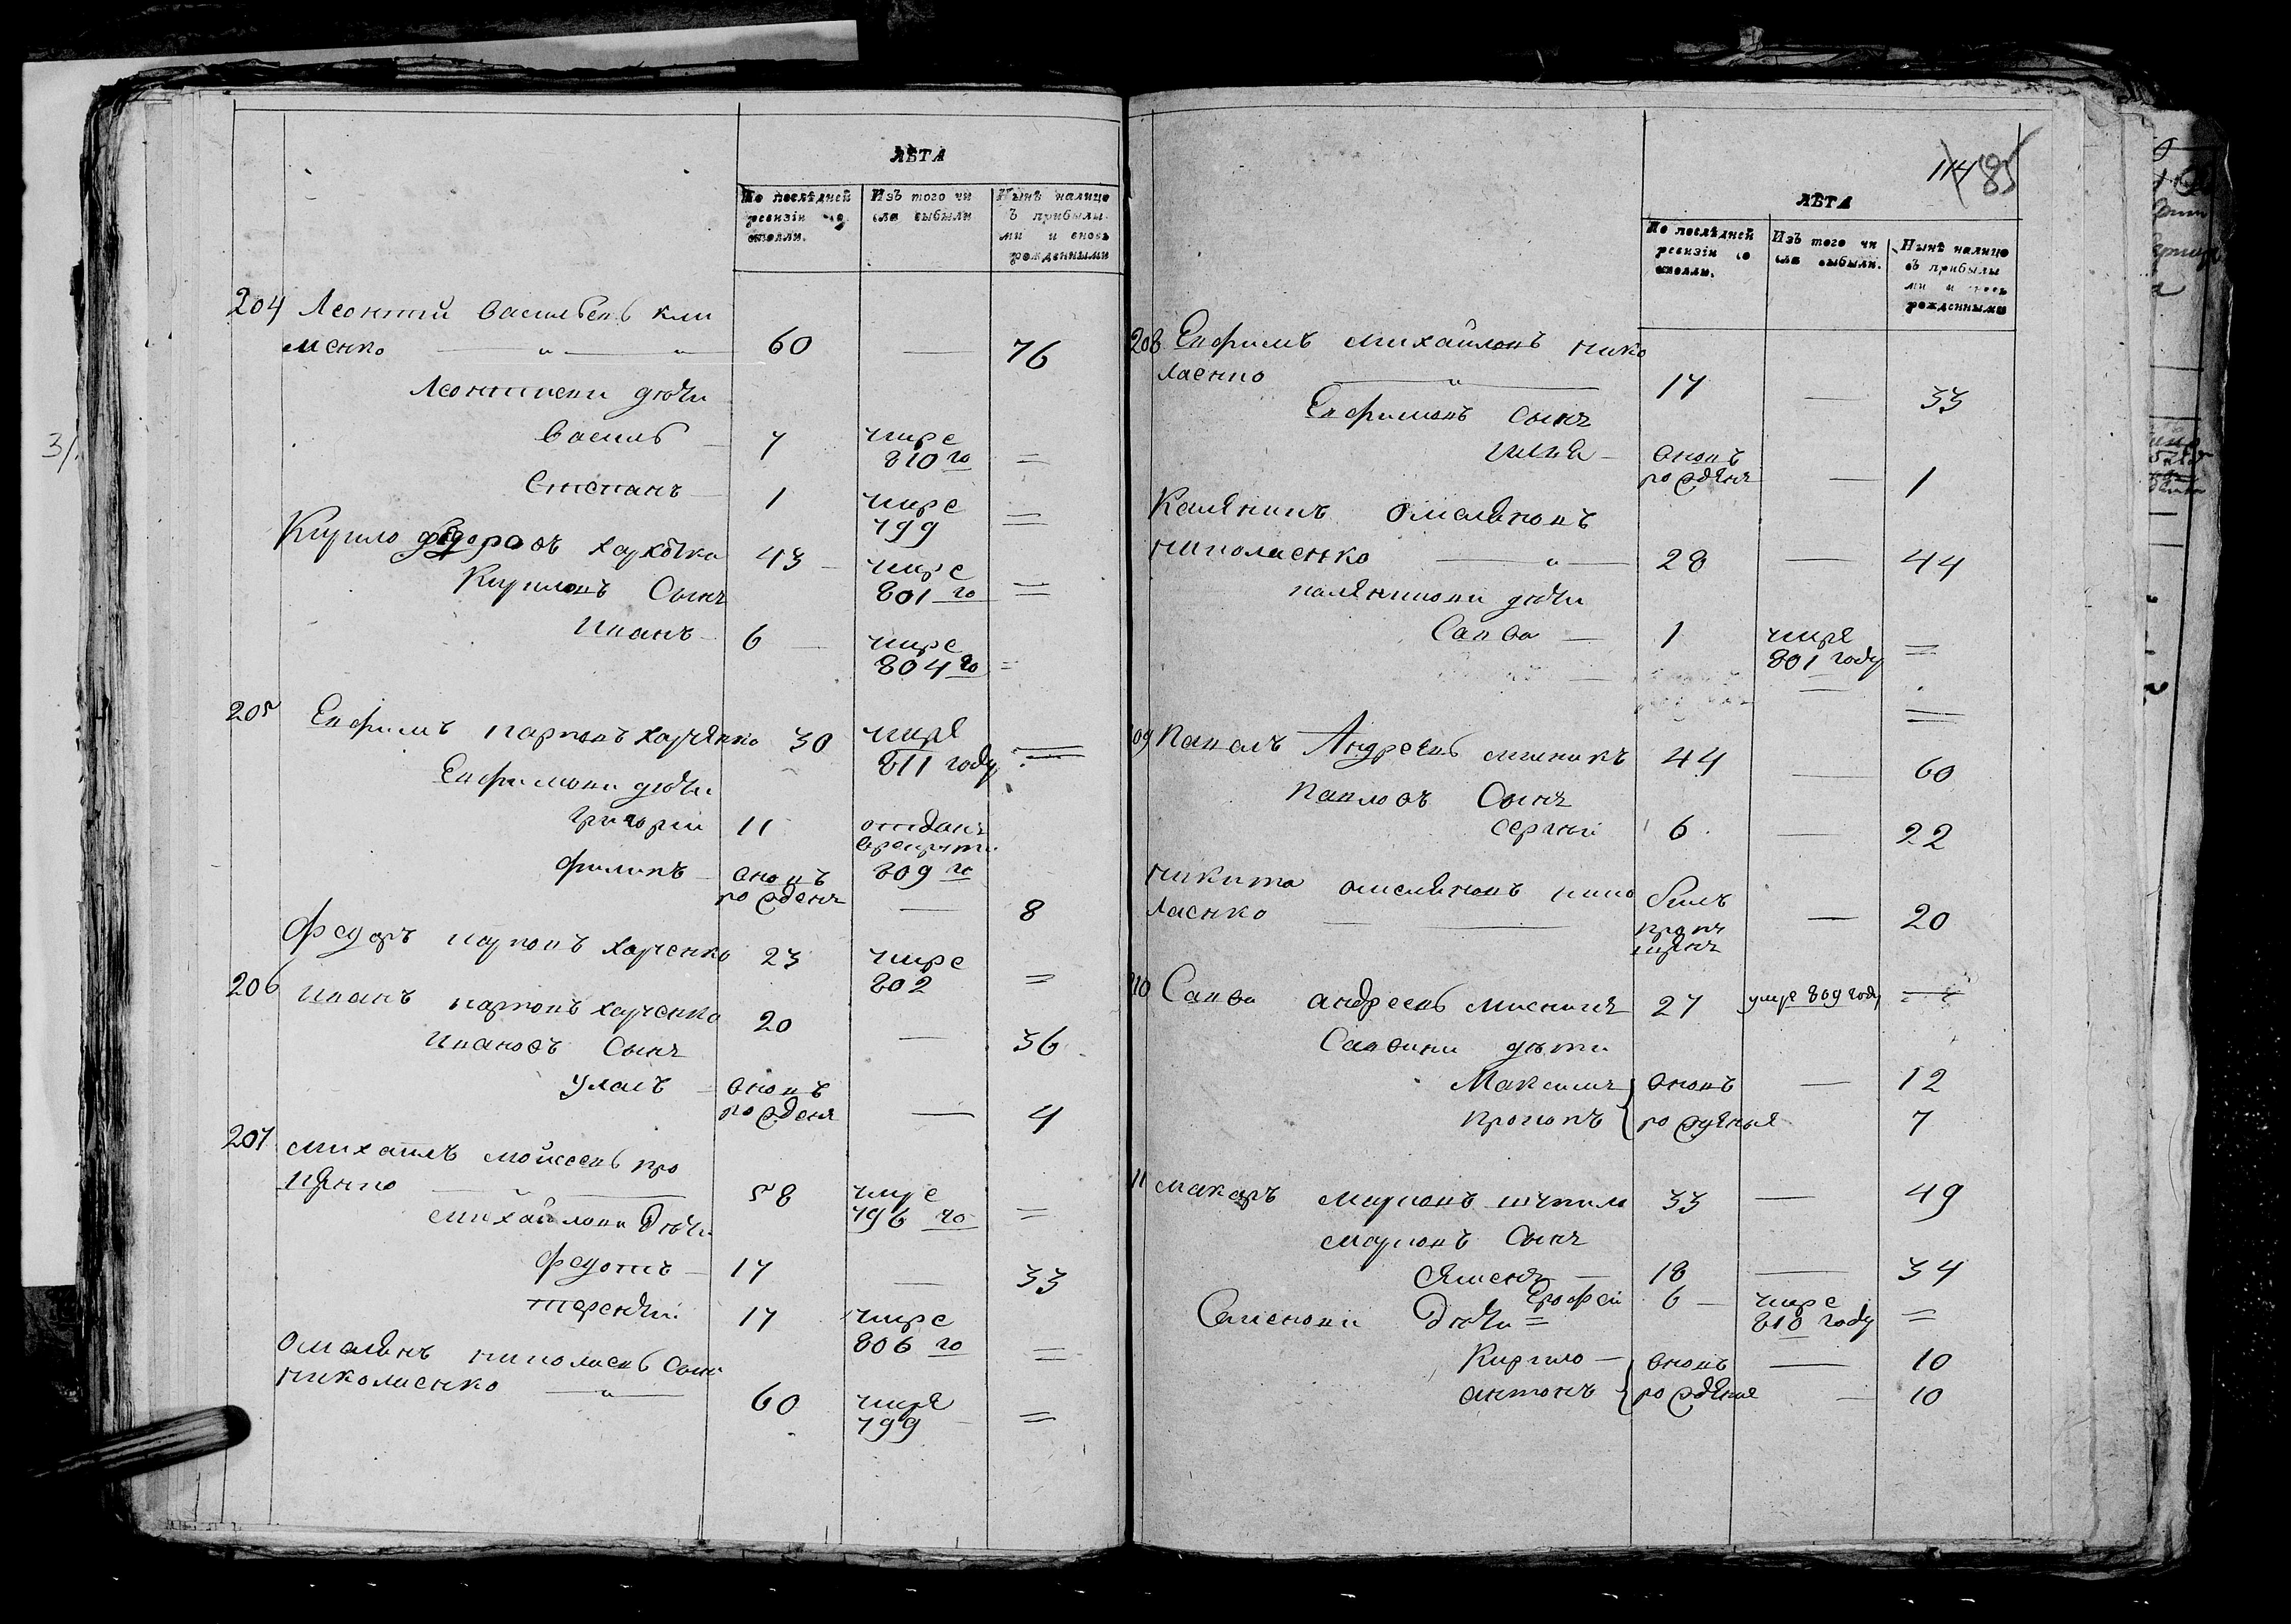 ЛѢТА
По послѣдней ревизіи состояли.
Изъ того числа выбыли
Нынѣ налицо съ прибылыми и вновь рожденными
204 Леонтій Васильевъ Кли
менко 60 — 76
Леонтиеви дѣти
Василь 7 умре 810 го =
Степанъ 1 умре 799 =
Кирило Федоровъ 43 умре 801 го =
Кириловъ Сынъ
Иванъ 6 умре 804 го =
205 Евфимъ Карповъ Харченко 30 умре 811 году =
Евфимови дѣти
Григорій 11 отданъ врекрути 809 го
Филипъ вновь рожденъ — 8
Федоръ Карповъ Харченко 23 умре 802 =
206 Иванъ Карповъ Харченко 20 — 36
Ивановъ Сынъ
Уласъ вновь рожденъ — 4
207 Михаилъ Мойсеевъ Про
ценко 58 умре 796 го =
Михайлови Дѣти
Федотъ 17 — 33
Терентій 17 умре 806 го =
Омелянъ Николаевъ Сынъ
Николаенко 60 умре 799 =
114 85
ЛѢТА
По послѣдней ревизіи состояли.
Изъ того числа выбыли.
Нынѣ налицо съ прибылыми и вновь рожденными
208 Евфимъ Михайловъ Нико
лаенко 17 — 33
Евфимовъ Сынъ
Илья вновь рожденъ — 1
Омеляновъ
Николаенко 28 — 44
дѣти
Савва 1 умре 801 году =
— =
09 Павелъ Андреевъ Мисникъ 44 — 60
Павловъ Сынъ
Сергій 6 — 22
Никита Омеляновъ Нико
лаенко билъ пропущенъ — 20
10 Савва Андреевъ Мисникъ 27 умре 809 году =
Саввини дѣти
Максимъ вновь — 12
Прокопъ рожденые 7
11 Макаръ Марковъ 33 — 49
Марковъ Сынъ
Семенъ 18 — 34
Ерофей 6 умре 810 году =
Семенови Дѣти =
Кирило вновь — 10
Антонъ рожденые — 10